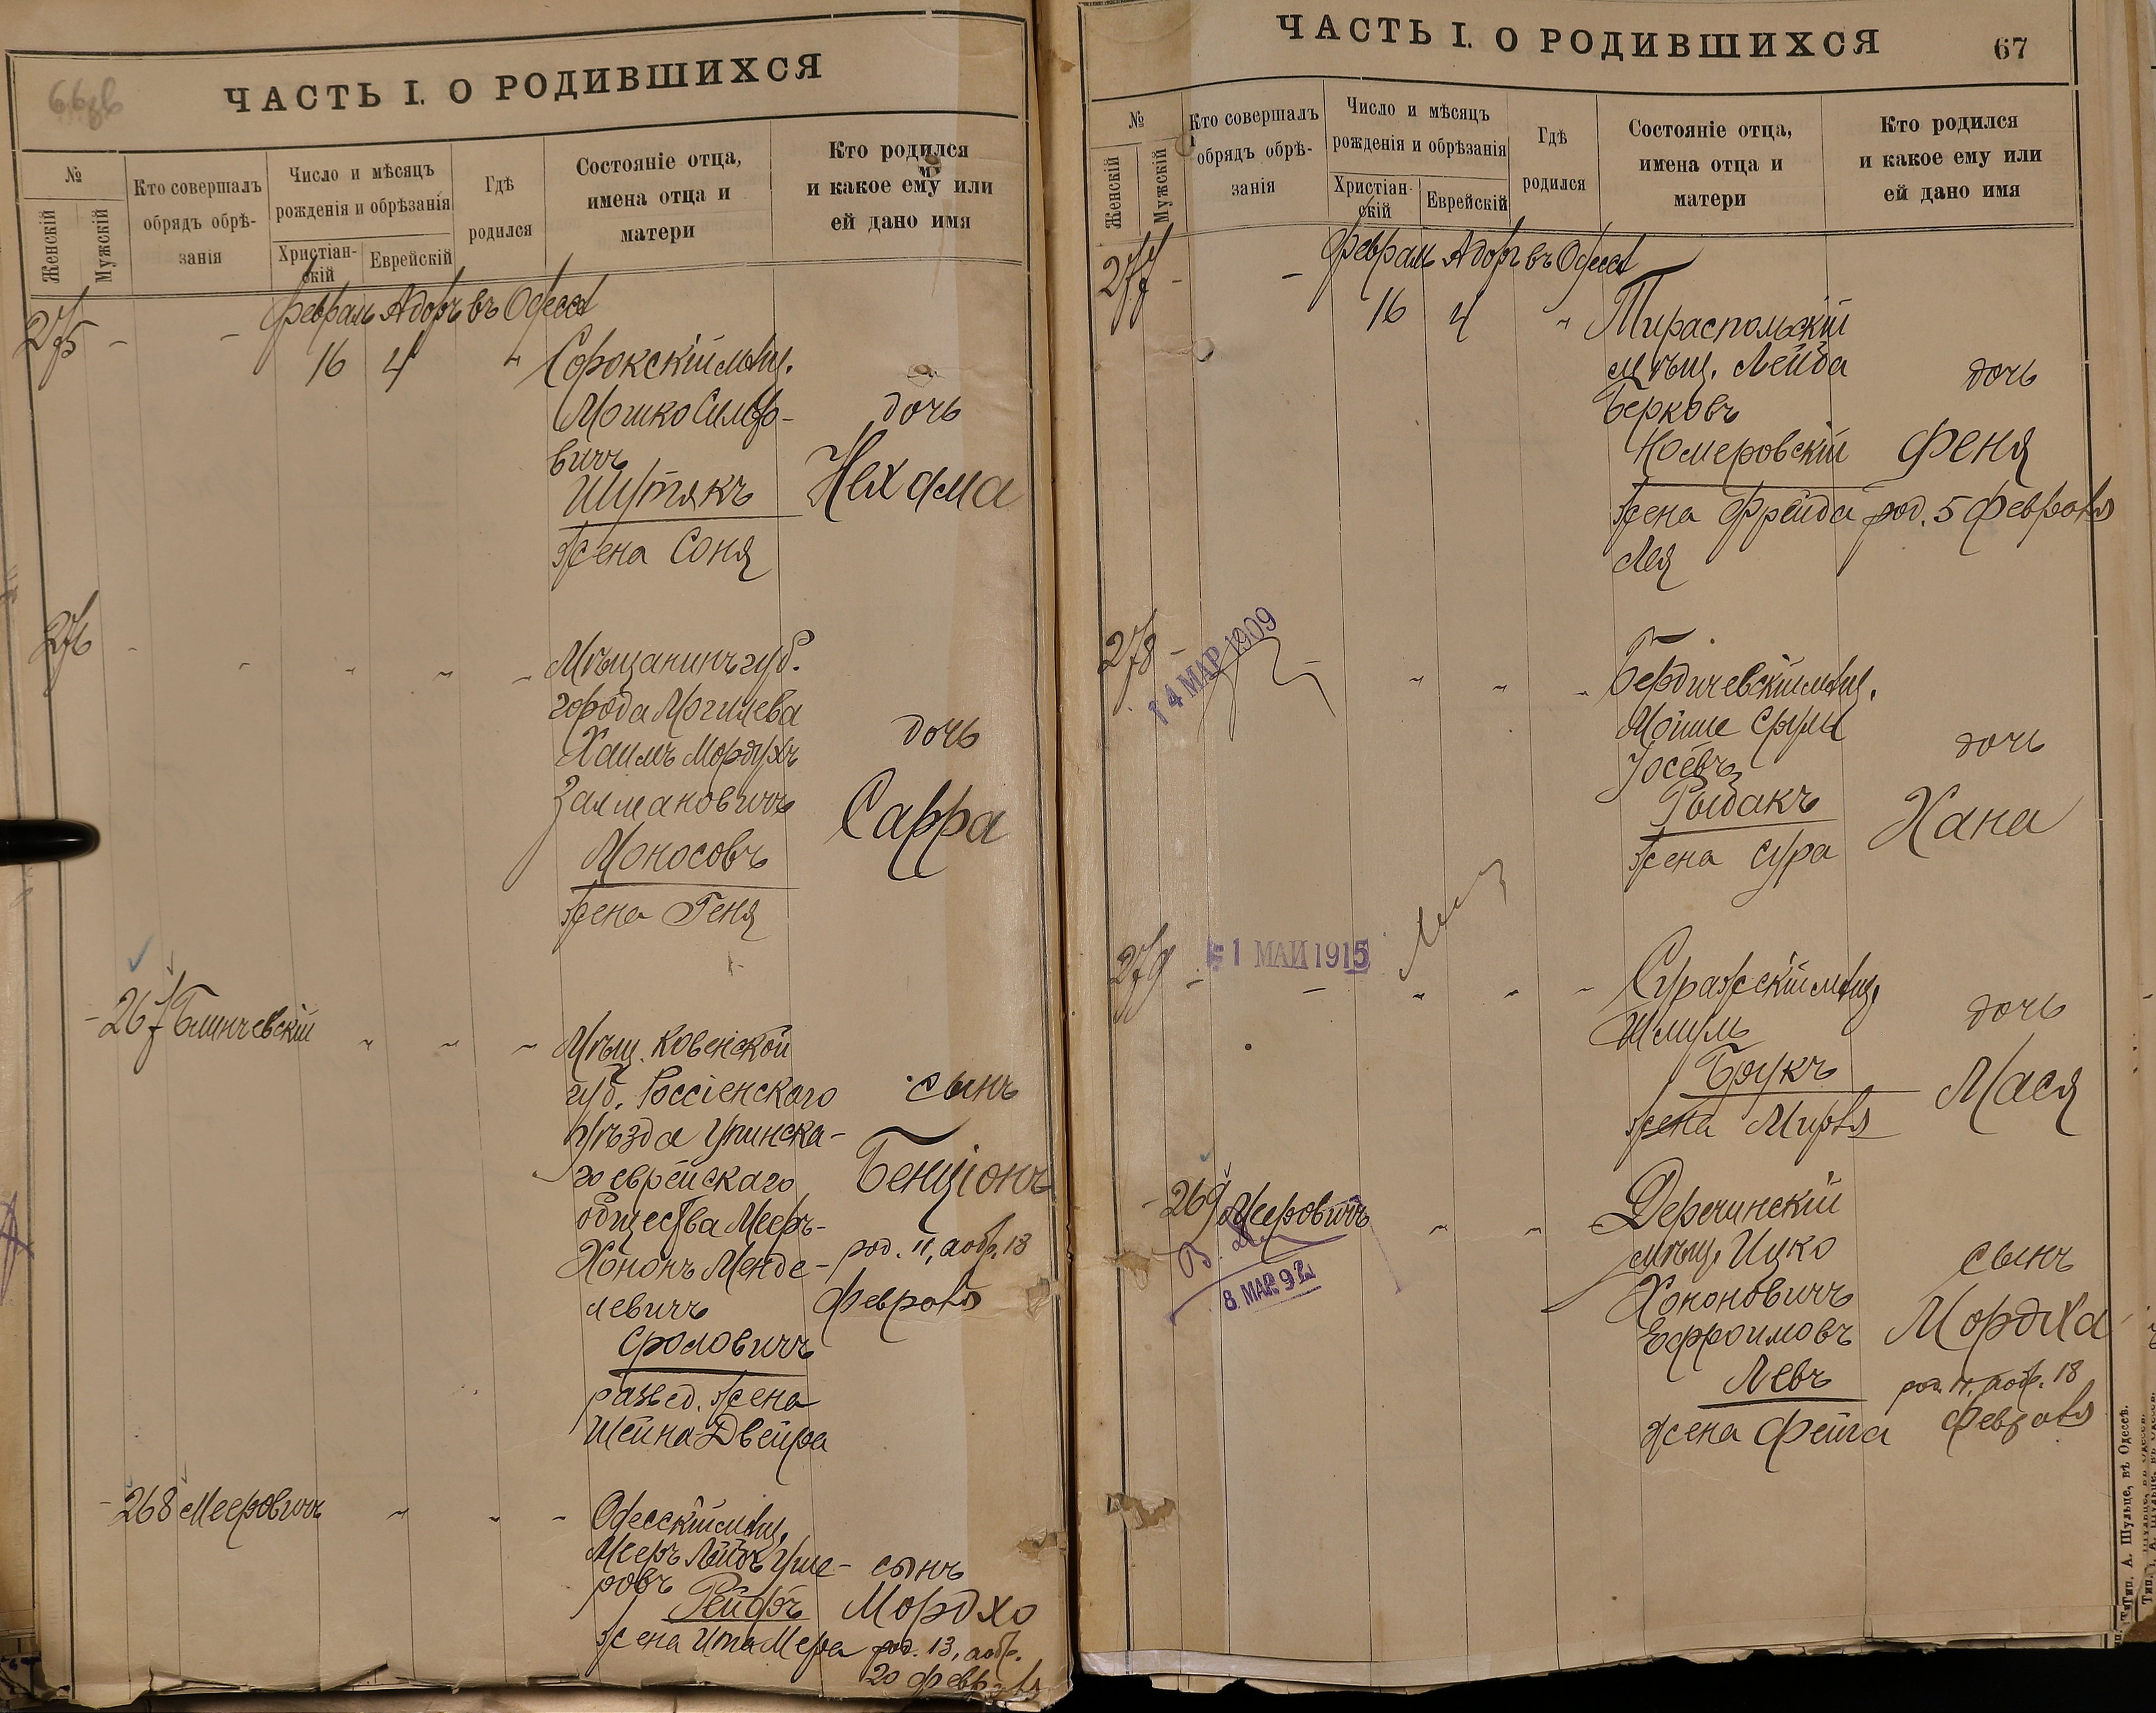 ЧАСТЬ I. О РОДИВШИХСЯ
№
Женскій
Мужскій
Кто совершалъ
обрядъ обрѣ-
занія
Число и мѣсяцъ
рожденія и обрѣзанія
Христіан-
скій
Еврейскій
Гдѣ
родился
Состояніе отца,
имена отца и
матери
Кто родился
и какое ему или
ей дано имя
275 - - Февраль Адаръ въ Одессѣ
16 4 " Сорокскій мѣщ.
Мошко
вичъ
дочь
Шутякъ
Нехама
жена Соня
276
Мѣщанинъ губ.
города Могилева
Хаимъ Мордухъ
дочь
Залмановичъ
Сарра
Моносовъ
жена Геня
- 267 Блинчевскій
Мѣщ. Ковенской
губ. Россіенскаго
сынъ
уѣзда
го еврейскаго
Бенціонъ
общества Мееръ-
Хононъ Менде-
род. 11, аобр. 18
левичъ
февраля
Сроловичъ
развед. жена
Шейна Двейра
- 268 Мееровичъ
Одесскій мѣщ.
Мееръ Лейбъ Уше-
сынъ
ровъ
Рейфъ
Мордхо
жена Ита Мера
род. 13, аобр.
20 февраля
ЧАСТЬ I. О РОДИВШИХСЯ
67
№
Женскій
Мужскій
Кто совершалъ
обрядъ обрѣ-
занія
Число и мѣсяцъ
рожденія и обрѣзанія
Христіан-
скій
Еврейскій
Гдѣ
родился
Состояніе отца,
имена отца и
матери
Кто родился
и какое ему или
ей дано имя
277 - - Февраль Адаръ въ Одессѣ
16 4 " Тираспольскій
мѣщ. Лейба
дочь
Берковъ
Комеровскій
Феня
жена Фрейда
род. 5 февраля
Лея
278 -
14 МАР 1909
Бердичевскій мѣщ.
Мойше Сруль
Іосевъ
дочь
Рыдакъ
Хана
жена Сура
279 -
1 МАЙ 1915
Суражскій мѣщ.
Шмуль
дочь
Брукъ
Мася
жена Миря
- 269 Мееровичъ
8 МАР. 92
Деречинскій
мѣщ. Ицко
сынъ
Хононовичъ
Ефроимовъ
Мордха
Левъ
род. 11, аобр. 18
февраля
жена Фейга
Тип. А. Шульце, въ Одессѣ.